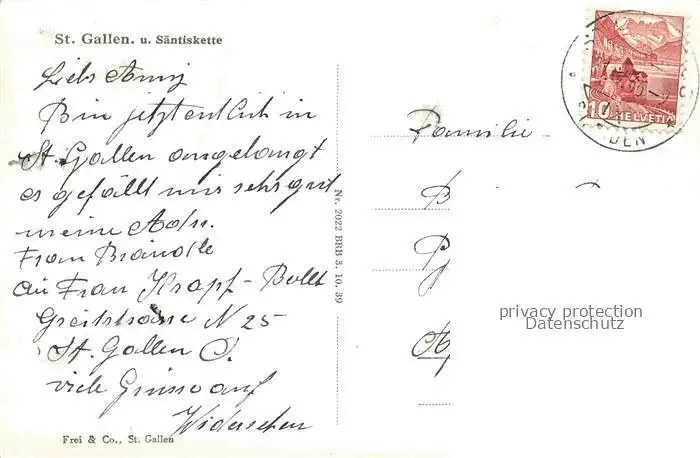 St. Gallen. u. Säntiskette
Liebe Anny
Bin jetzt entlich in
St. Gallen angelangt
es gefällt mir sehr gut
meine Adr.
Frau Brändle
an Frau Krapf-Bollt
N 25
St. Gallen O.
viele Grüsse auf
Widersehen
Frei & Co., St. Gallen
Nr. 2022 BRB 3. 10. 39
Familie
B
P
10 HELVETIA
privacy protection
Datenschutz